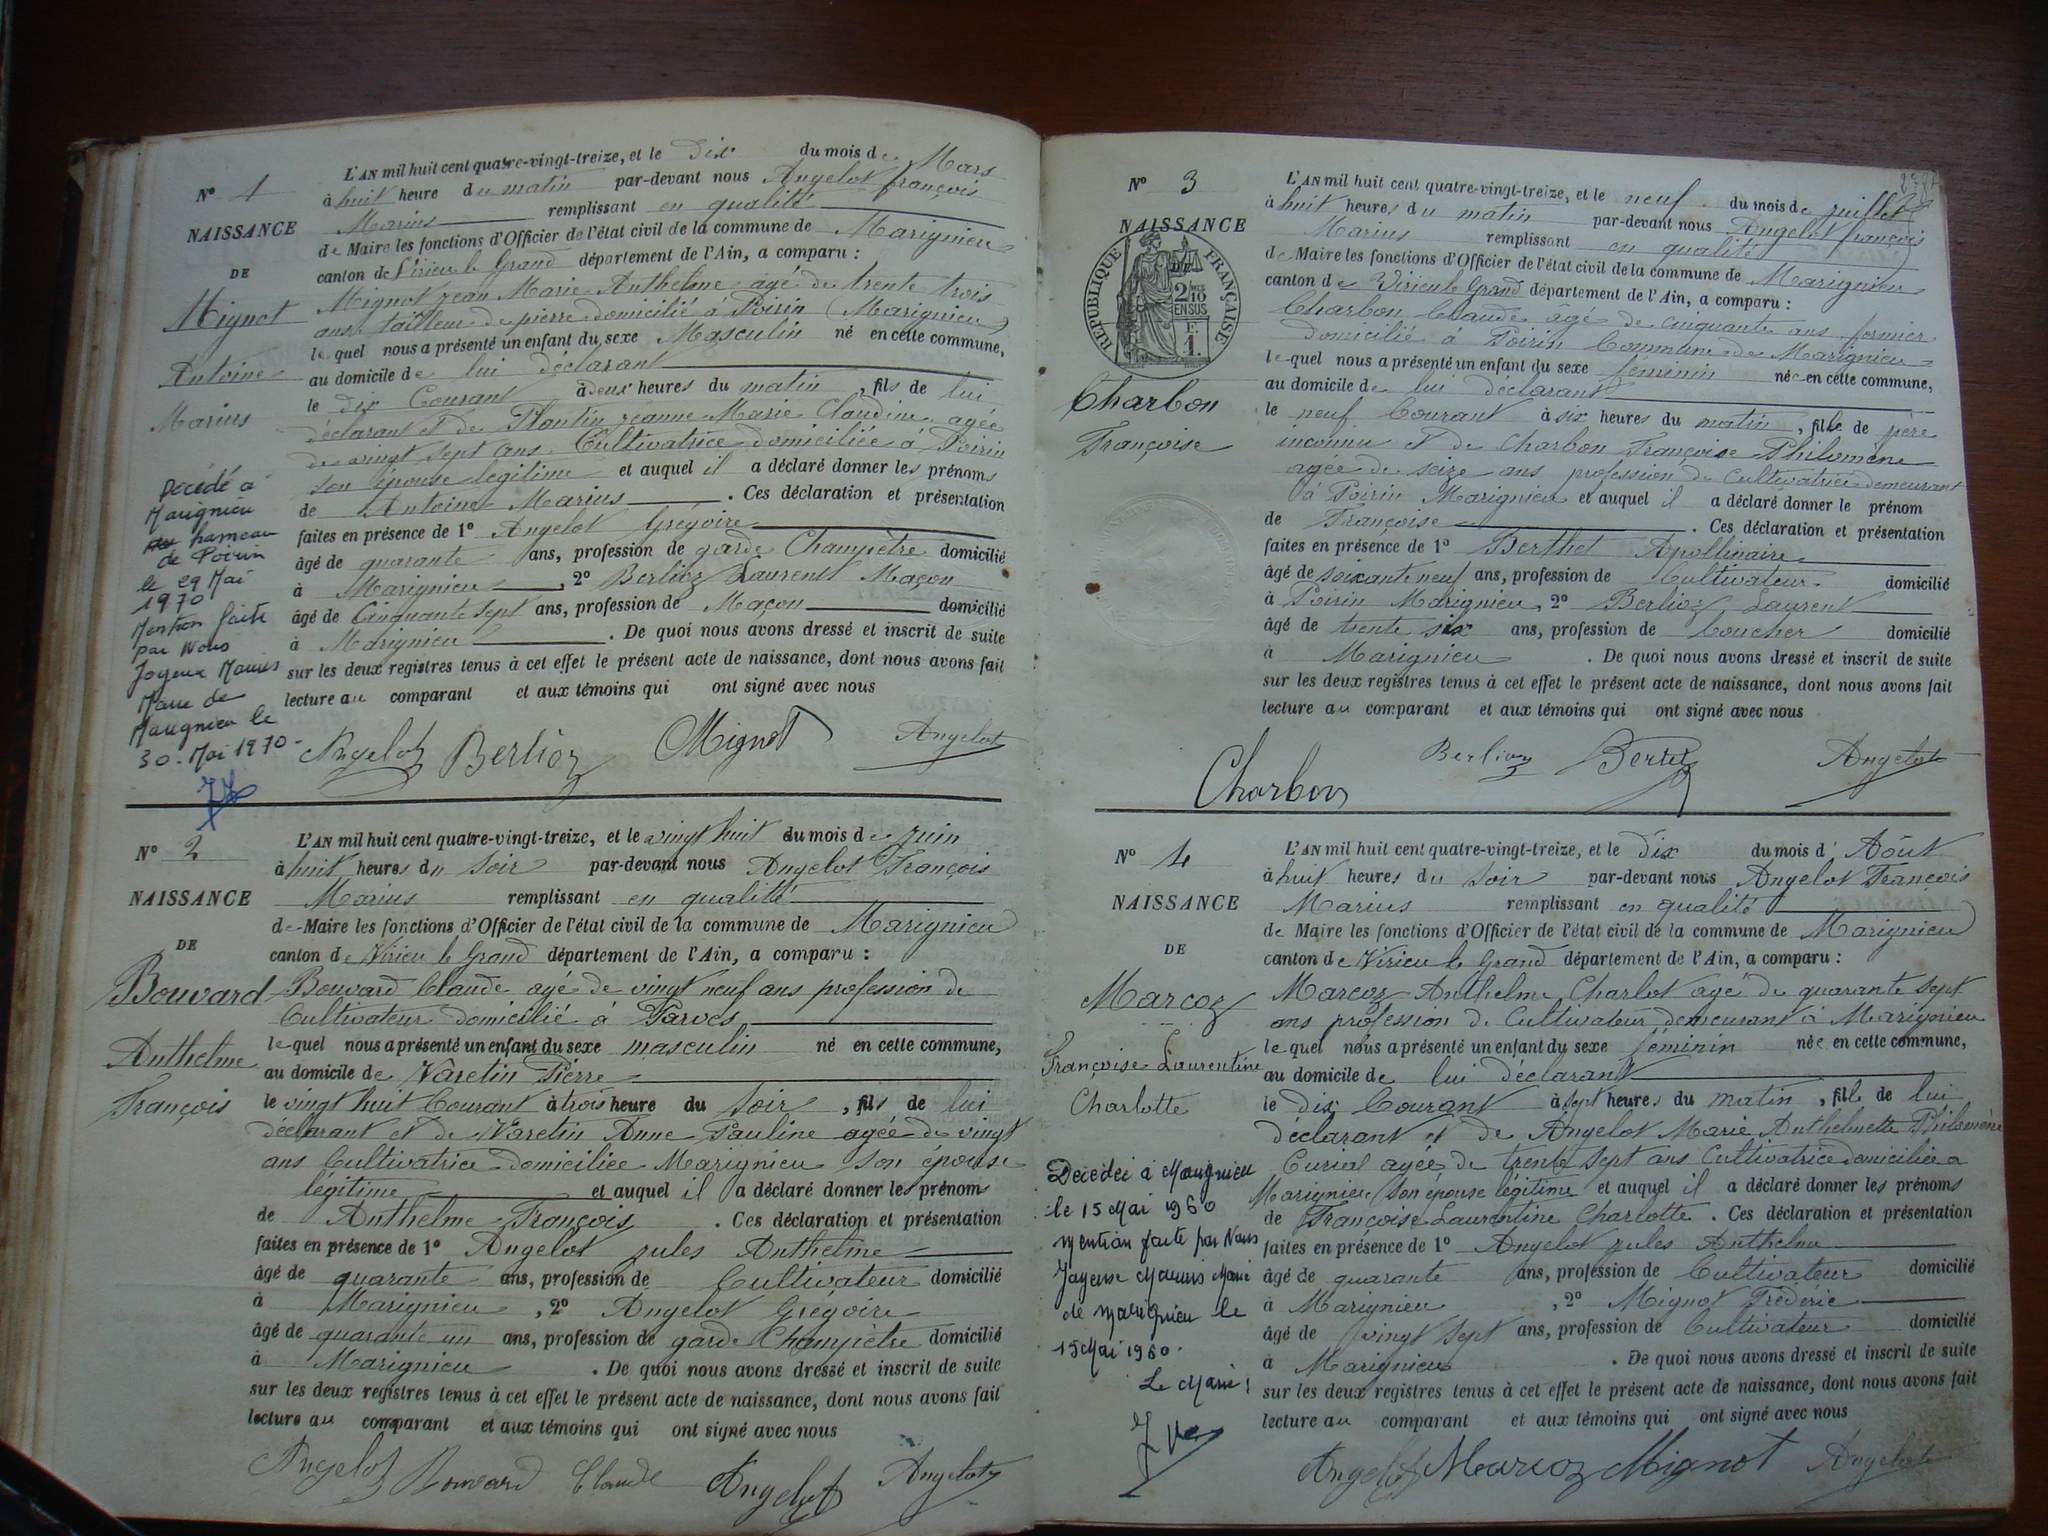 N° 1
NAISSANCE
DE
Mignot
Antoine
Marius
Décédé à
Marignieu
hameau
de Poirin
le 29 Mai
1970
Mention faite
par Nous
Joyeux Mauris
Maire de
Marignieu le
30 - Mai 1970 -
L'AN mil huit cent quatre-vingt-treize, et le Dix du mois de Mars
à huit heure du matin par-devant nous Angelot françois
Marius remplissant en qualité
de Maire les fonctions d'Officier de l'état civil de la commune de Marignieu
canton de Virieu le Grand département de l'Ain, a comparu :
Mignot Jean Marie Anthelme agé de trente trois
ans tailleur de pierre domicilié à Poirin (Marignieu)
lequel nous a présenté un enfant du sexe Masculin né en cette commune,
au domicile de lui déclarant
le dix Courant à deux heures du matin, fils de lui
déclarant et de Plantin Jeanne Marie Claudine agée
de vingt sept ans Cultivatrice domiciliée à Poirin
son épouse légitime et auquel il a déclaré donner les prénoms
de Antoine Marius . Ces déclaration et présentation
faites en présence de 1° Angelot Grégoire
âgé de quarante ans, profession de garde Champêtre domicilié
à Marignieu , 2° Berlioz Laurent Maçon
âgé de Cinquante sept ans, profession de Maçon domicilié
à Marignieu . De quoi nous avons dressé et inscrit de suite
sur les deux registres tenus à cet effet le présent acte de naissance, dont nous avons fait
lecture au comparant et aux témoins qui ont signé avec nous
Angelot Berlioz Mignot Angelot
N° 2
NAISSANCE
DE
Bouvard
Anthelme
François
L'AN mil huit cent quatre-vingt-treize, et le vingt huit du mois de juin
à huit heures du soir par-devant nous Angelot François
Marius remplissant en qualité
de Maire les fonctions d'Officier de l'état civil de la commune de Marignieu
canton de Virieu le Grand département de l'Ain, a comparu :
Bouvard Claude agé de vingt neuf ans profession de
Cultivateur domicilié à Parves
lequel nous a présenté un enfant du sexe masculin né en cette commune,
au domicile de Varetin Pierre
le vingt huit Courant à trois heure du soir, fils de lui
déclarant et de Varetin Anne Pauline agée de vingt
ans Cultivatrice domiciliée Marignieu son épouse
légitime et auquel il a déclaré donner les prénoms
de Anthelme François . Ces déclaration et présentation
faites en présence de 1° Angelot jules Anthelme
âgé de quarante ans, profession de Cultivateur domicilié
à Marignieu , 2° Angelot Grégoire
âgé de quarante un ans, profession de garde Champêtre domicilié
à Marignieu . De quoi nous avons dressé et inscrit de suite
sur les deux registres tenus à cet effet le présent acte de naissance, dont nous avons fait
lecture au comparant et aux témoins qui ont signé avec nous
Angelot Bouvard Claude Angelot Angelot
N° 3
NAISSANCE
DE
RÉPUBLIQUE FRANÇAISE
2/10 EN SUS
1 F.
Charbon
Françoise
L'AN mil huit cent quatre-vingt-treize, et le neuf du mois de juillet
à huit heures du matin par-devant nous Angelot françois
Marius remplissant en qualité
de Maire les fonctions d'Officier de l'état civil de la commune de Marignieu
canton de Virieu le Grand département de l'Ain, a comparu :
Charbon Claude agé de cinquante ans fermier
domicilié à Poirin Commune de Marignieu
lequel nous a présenté un enfant du sexe féminin née en cette commune,
au domicile de lui déclarant
le neuf Courant à six heures du matin, fille de père
inconnu et de Charbon Françoise Philomène
agée de seize ans profession de Cultivatrice demeurant
à Poirin Marignieu et auquel il a déclaré donner le prénom
de Françoise . Ces déclaration et présentation
faites en présence de 1° Berthet Apollinaire
âgé de soixante neuf ans, profession de Cultivateur domicilié
à Poirin Marignieu, 2° Berlioz Laurent
âgé de trente six ans, profession de Coucher domicilié
à Marignieu . De quoi nous avons dressé et inscrit de suite
sur les deux registres tenus à cet effet le présent acte de naissance, dont nous avons fait
lecture au comparant et aux témoins qui ont signé avec nous
Charbon Berlioz Angelot
N° 4
NAISSANCE
DE
Marcoz
Françoise Laurentine
Charlotte
Décédée à Marignieu
le 15 Mai 1960
mention faite par Nous
Joyeux Mauris Maire
de Marignieu le
15 Mai 1960.
Le Maire :
L'AN mil huit cent quatre-vingt-treize, et le Dix du mois d' Août
à huit heures du soir par-devant nous Angelot François
Marius remplissant en qualité
de Maire les fonctions d'Officier de l'état civil de la commune de Marignieu
canton de Virieu le Grand département de l'Ain, a comparu :
Marcoz Anthelme Charlot agé de quarante sept
ans profession de Cultivateur demeurant à Marignieu
lequel nous a présenté un enfant du sexe féminin née en cette commune,
au domicile de lui déclarant
le dix Courant à sept heures du matin, fille de lui
déclarant et de Angelot Marie Anthelmette Philomène
Curial agée de trente sept ans Cultivatrice domiciliée à
Marignieu son épouse légitime et auquel il a déclaré donner les prénoms
de Françoise Laurentine Charlotte. Ces déclaration et présentation
faites en présence de 1° Angelot jules Anthelme
âgé de quarante ans, profession de Cultivateur domicilié
à Marignieu , 2° Mignot Frédéric
âgé de vingt sept ans, profession de Cultivateur domicilié
à Marignieu . De quoi nous avons dressé et inscrit de suite
sur les deux registres tenus à cet effet le présent acte de naissance, dont nous avons fait
lecture au comparant et aux témoins qui ont signé avec nous
Angelot Marcoz Mignot Angelot